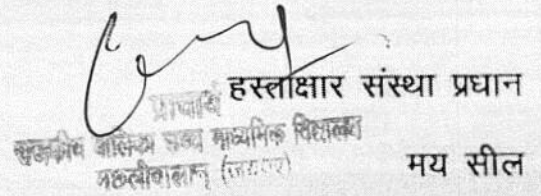 हस्ताक्षार संस्था प्रधान
प्राचार्य
राजकीय बालिका उच्च माध्यमिक विद्यालय
मय सील